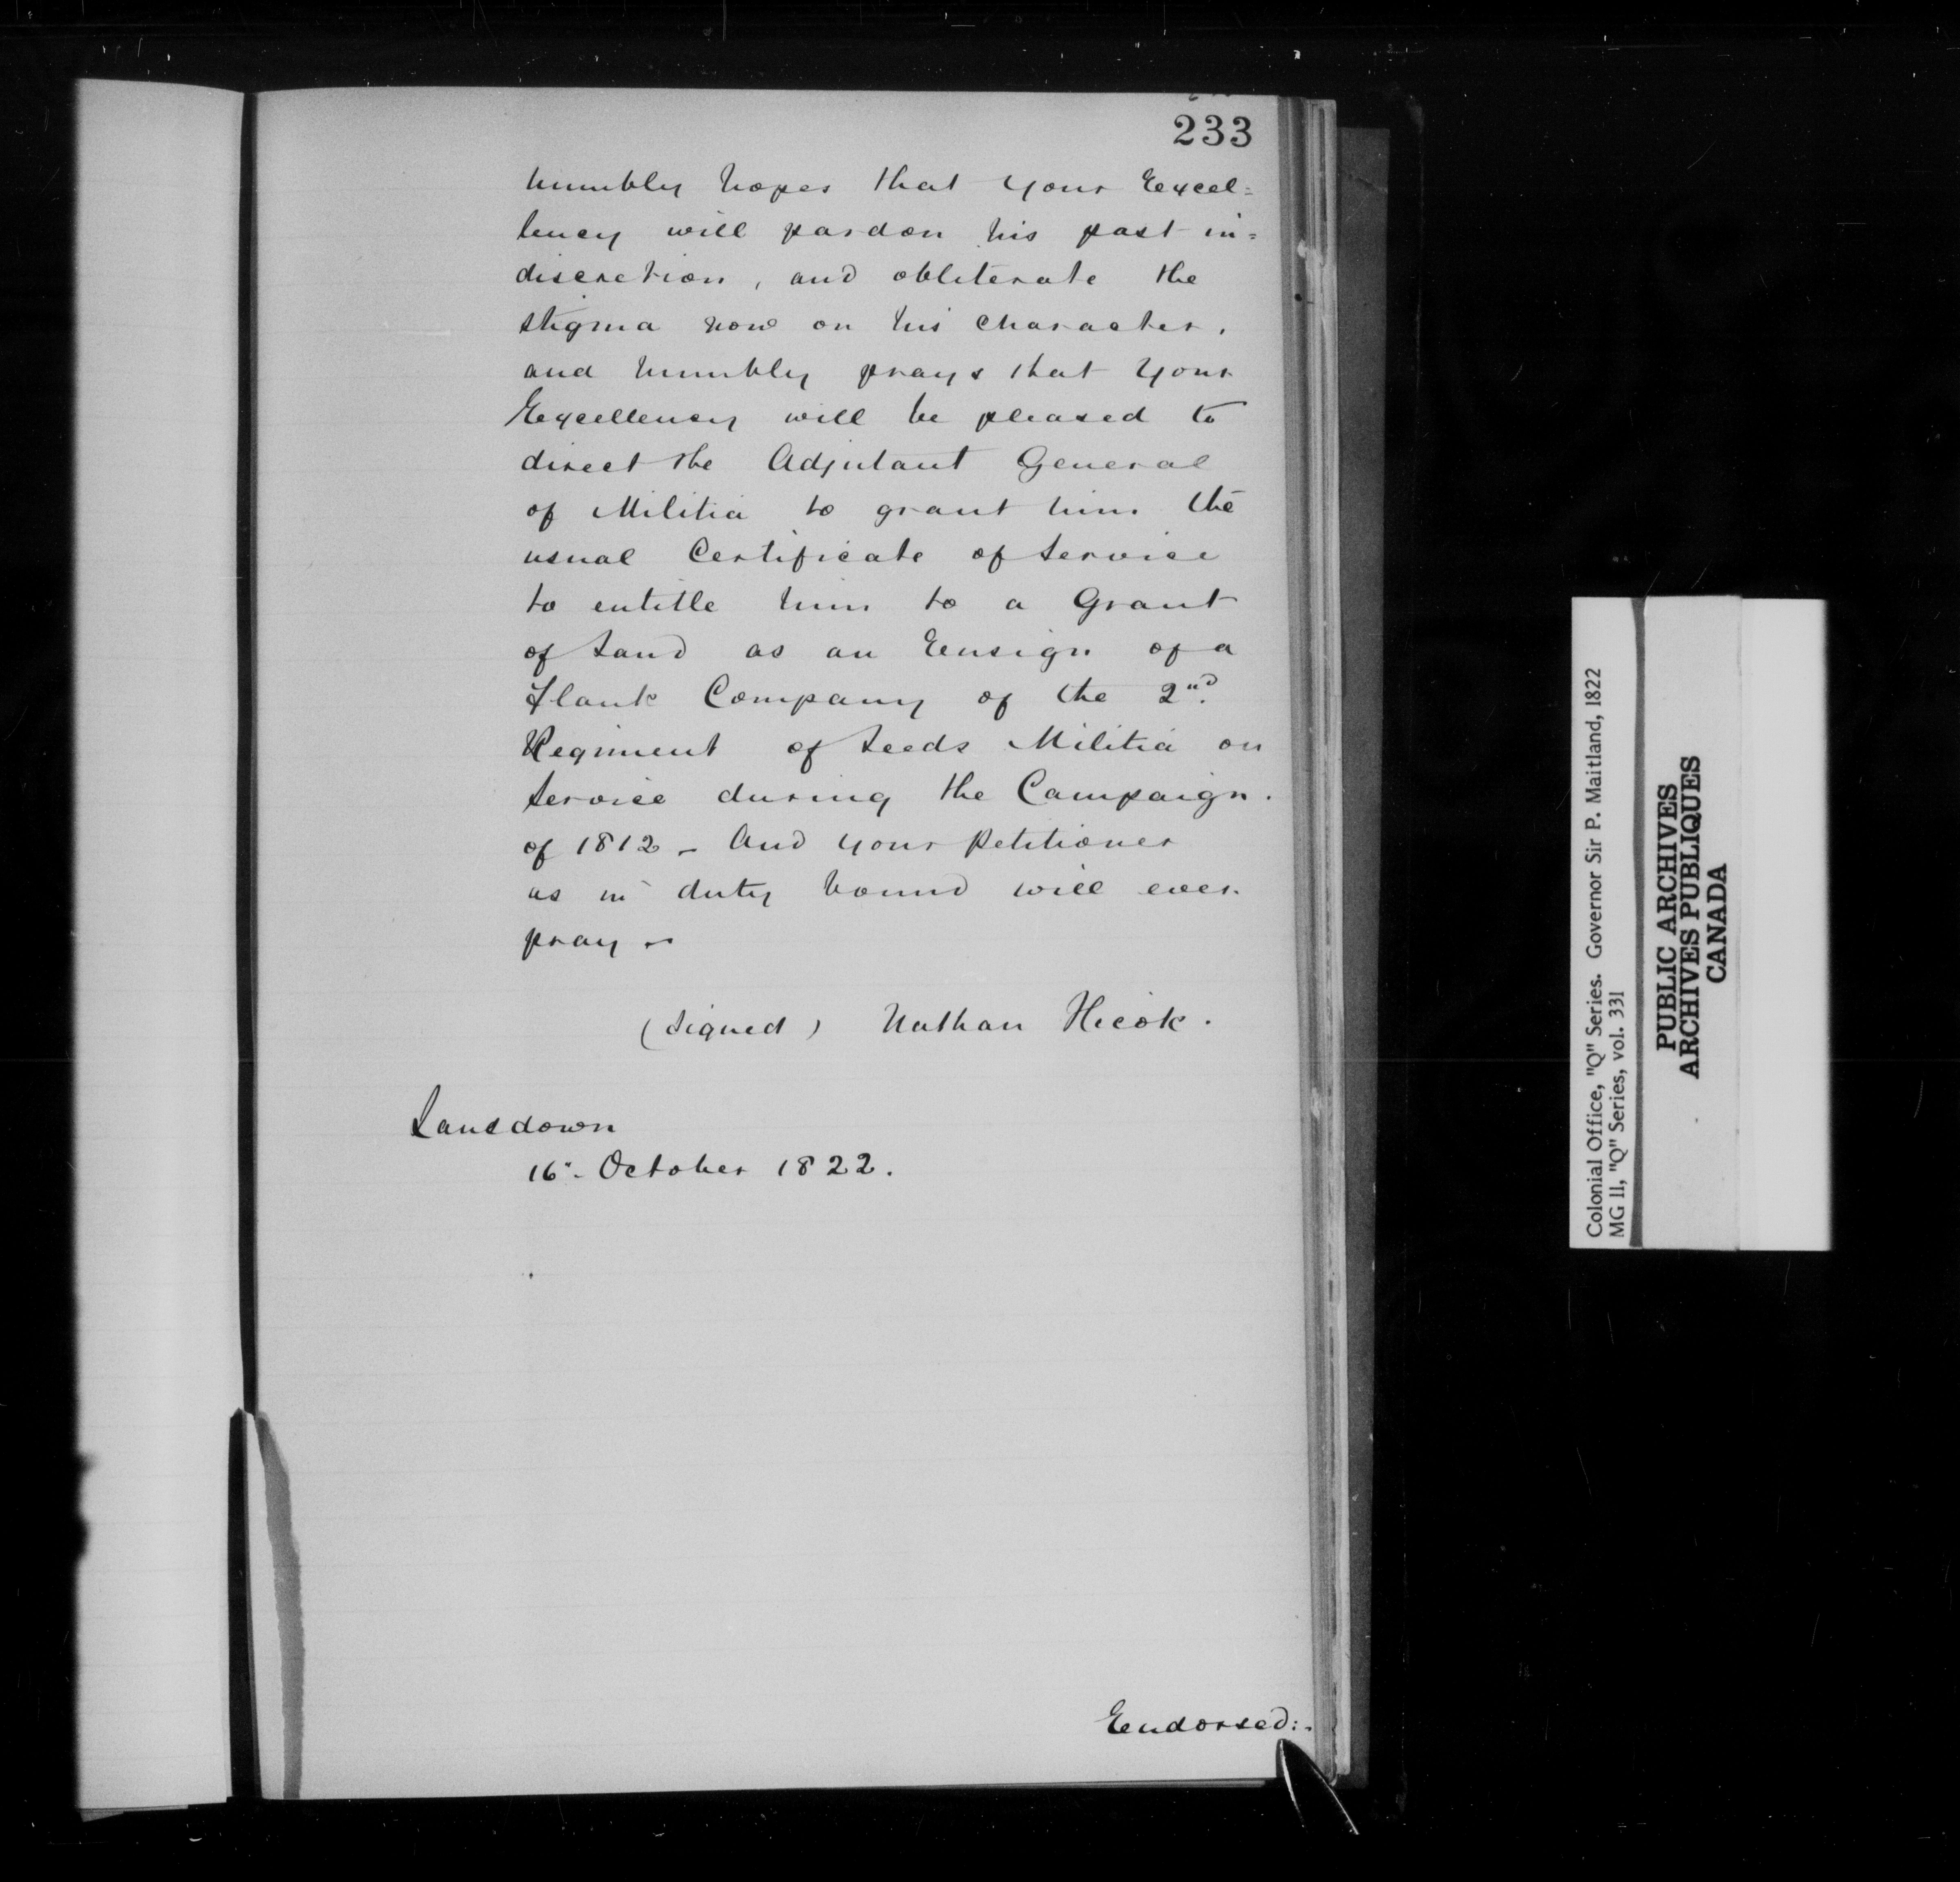 233
humbly hopes that your Excel=
lency will pardon his past in=
discretion, and obliterate the
stigma now on his character,
and humbly prays that your
Excellency will be pleased to
direct the Adjutant General
of Militia to grant him the
usual Certificate of Service
to entitle him to a Grant
of Land as an Ensign of a
Flank Company of the 2nd.
Regiment of Leeds Militia on
Service during the Campaign.
of 1812 - And your Petitioner
as in duty bound will ever
pray -
(signed) Nathan Hicok.
Lansdown
16"- October 1822.
Endorsed:-
Colonial Office, "Q" Series. Governor Sir P. Maitland, 1822
MG 11, "Q" Series, vol. 331
PUBLIC ARCHIVES
ARCHIVES PUBLIQUES
CANADA